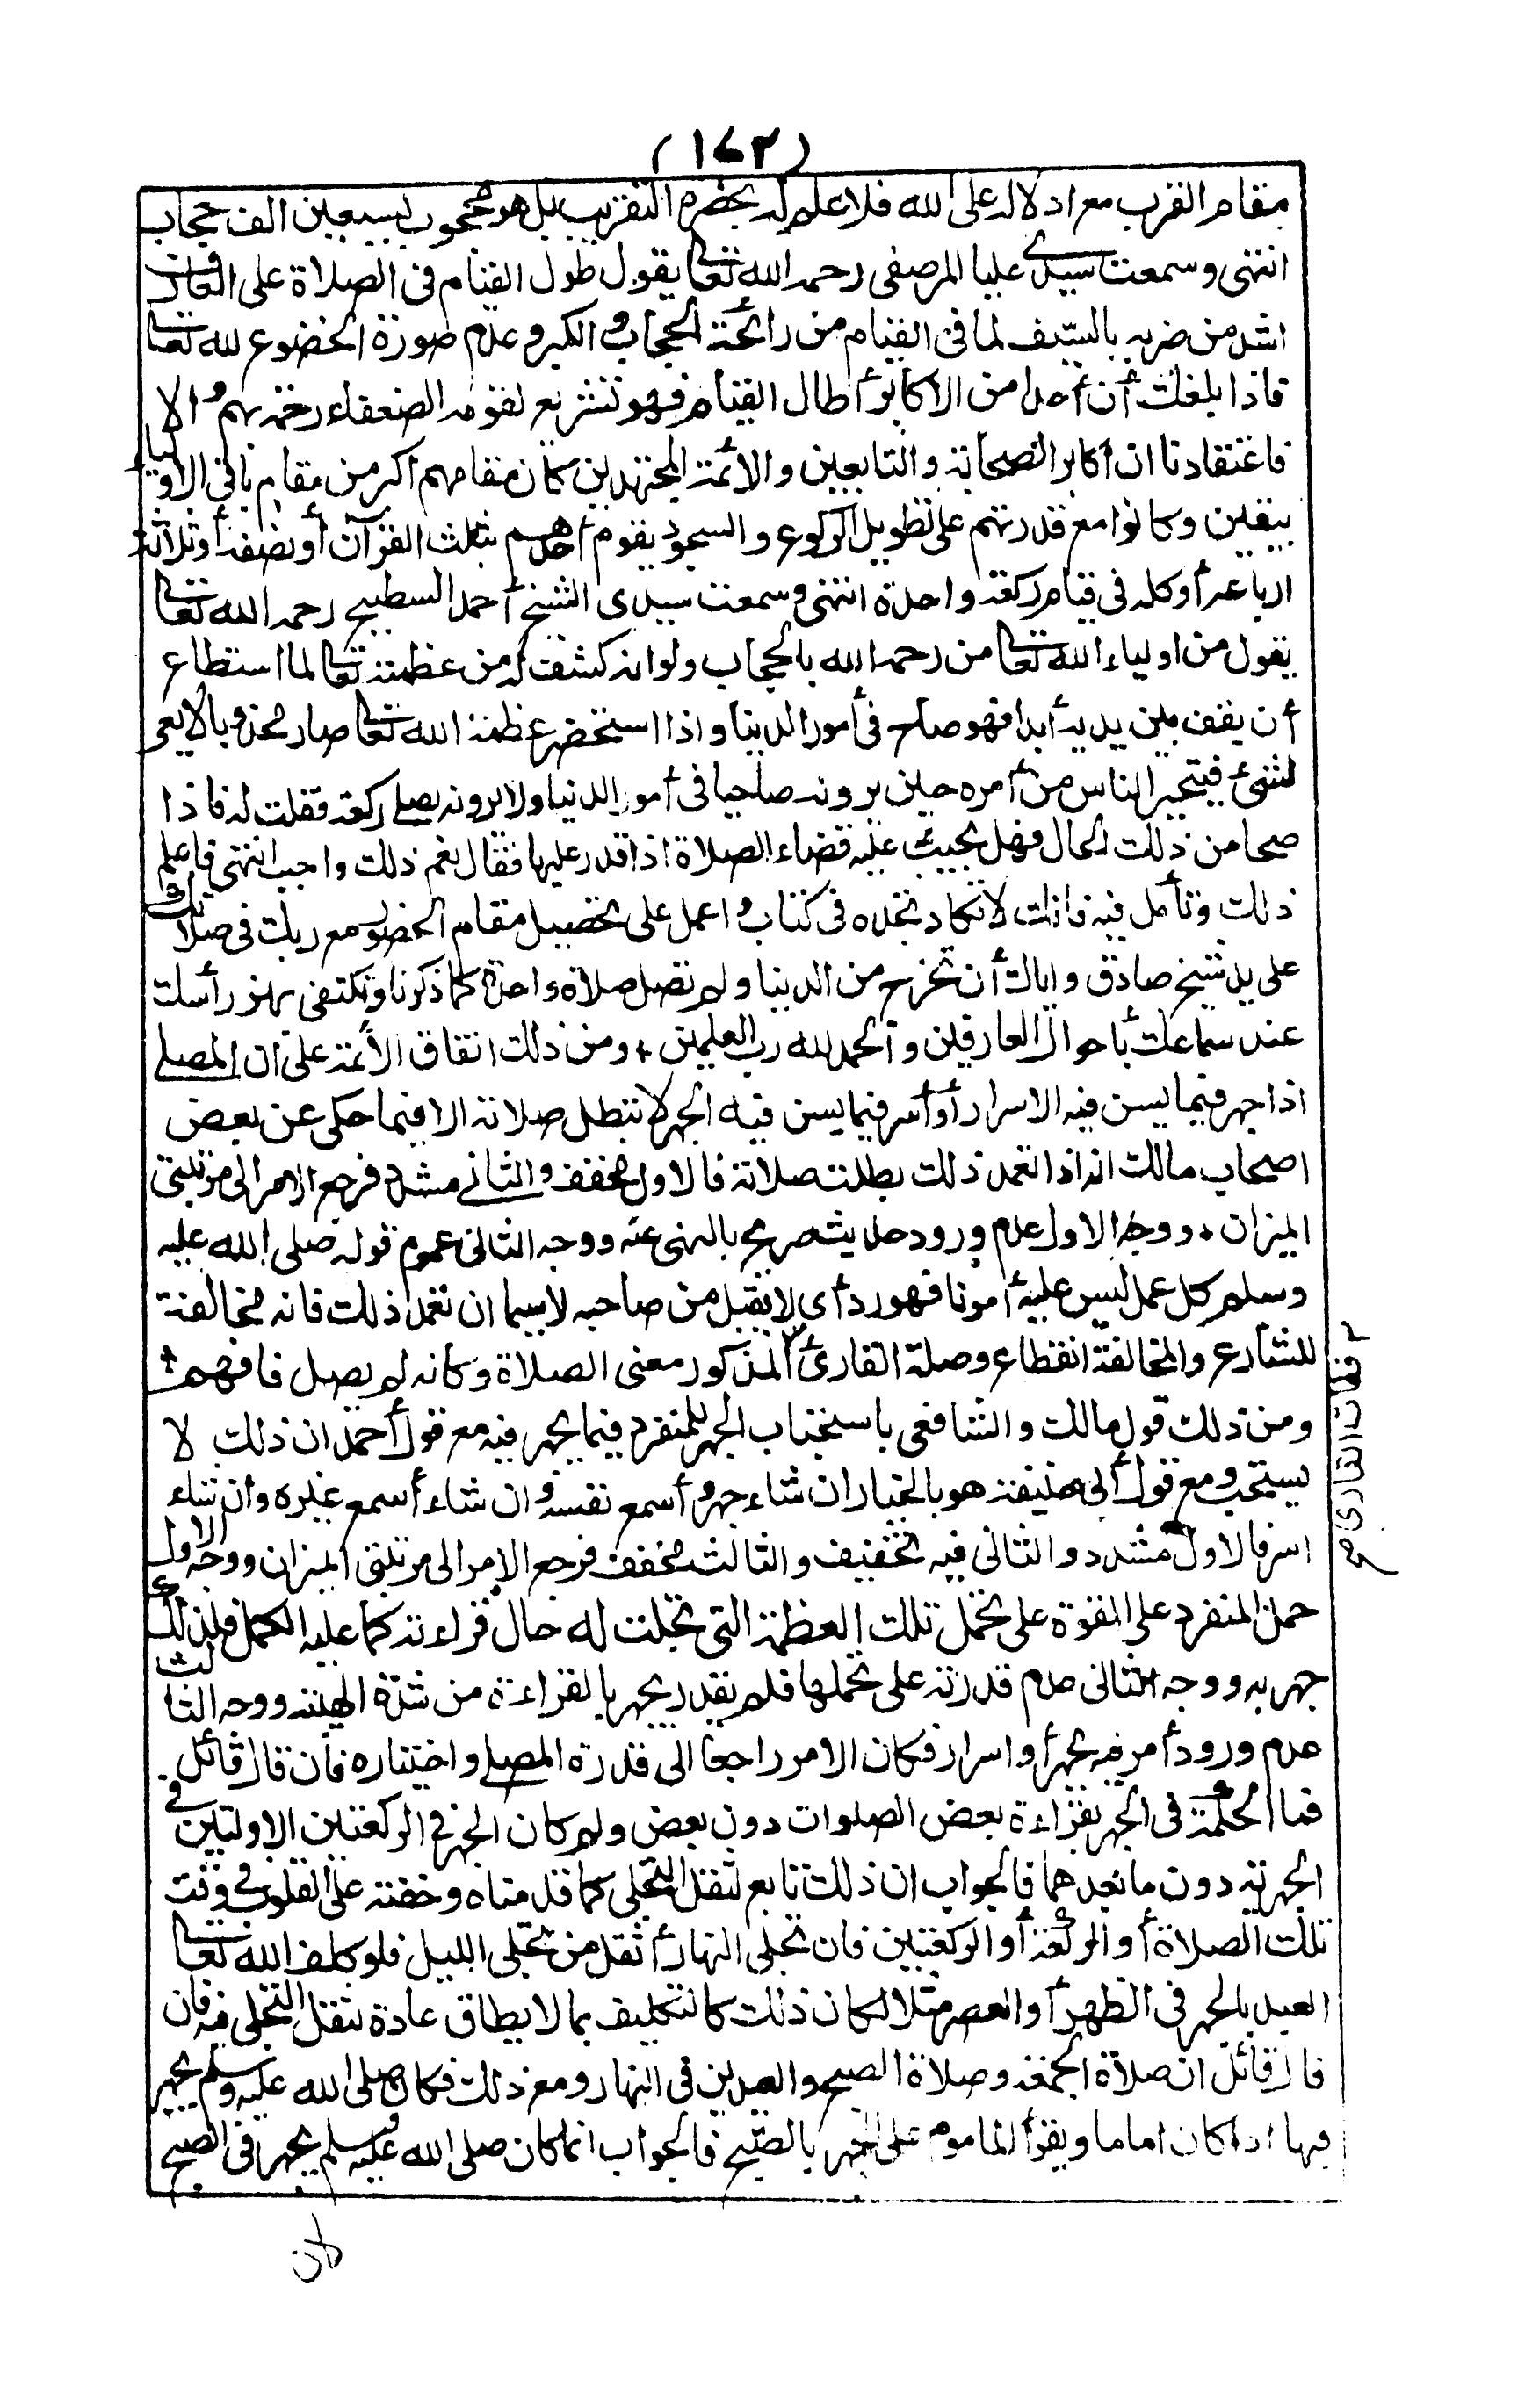 (١٤٢)
مقام القرب مع ادلاله على الله فلا علم له بحضرة التقريب بل هو محجوب بسبعين الف حجاب
انتهى وسمعت سيدى عليا المرصفى رحمه الله تعالى يقول طول القيام فى الصلاة على العارف
اشد من ضربه بالسيف لما فى القيام من رائحة الحجاب والكبر وعدم صورة الخضوع لله تعالى
فاذا بلغك أن أحدا من الاكابر أطال القيام فهو تشريع لقومه الضعفاء رحمة بهم والا
فاعتقادنا ان أكابر الصحابة والتابعين والائمة المجتهدين كان مقامهم اكبر من مقام باقى الاولياء
بيقين وكانوا مع قدرتهم على تطويل الركوع والسجود يقوم أحدهم بثلث القرآن أو نصفه أو ثلاثة
ارباعه أو كله فى قيام ركعة واحدة انتهى وسمعت سيدى الشيخ أحمد السطيح رحمه الله تعالى
يقول من اولياء الله تعالى من رحمه الله بالحجاب ولو انه كشف له من عظمته تعالى لما استطاع
أن يقف بين يديه أبدا فهو صاح فى أمور الدنيا واذا استحضر عظمة الله تعالى صار مجذوبا لا يعى
لشئ فيتحير الناس من أمره حين يرونه صاحيا فى أمور الدنيا ولا يرونه يصلى ركعة فقلت له فاذا
صحا من ذلك الحال فهل يجب عليه قضاء الصلاة اذا قدر عليها فقال نعم ذلك واجب انتهى فاعلم
ذلك وتأمل فيه فانك لا تكاد تجده فى كتاب واعمل على تحصيل مقام الحضور مع ربك فى صلاتك
على يد شيخ صادق واياك أن تخرج من الدنيا ولم تصل صلاة واحدة كما ذكرنا وتكتفى بهز رأسك
عند سماعك بأحوال العارفين والحمد لله رب العلمين + ومن ذلك اتفاق الأئمة على ان المصلى
اذا جهر فيما يسن فيه الاسرار أو أسر فيما يسن فيه الجهر لا تبطل صلاته الا فيما حكى عن بعض
اصحاب مالك انه اذا تعمد ذلك بطلت صلاته فالاول مخفف والثانى مشدد فرجع الامر الى مرتبتى
الميزان + ووجه الاول عدم ورود حديث صريح بالنهى عنه ووجه الثانى عموم قوله صلى الله عليه
وسلم كل عمل ليس عليه أمرنا فهو رد أى لا يقبل من صاحبه لا سيما ان تعمد ذلك فانه مخالفة
للشارع والمخالفة انقطاع وصلة القارئ المذكور معنى الصلاة وكانه لم يصل فافهم +
ومن ذلك قول مالك والشافعى باستحباب الجهر للمنفرد فيما يجهر فيه مع قول أحمد ان ذلك لا
يستحب ومع قول أبى حنيفة هو بالخيار ان شاء جهر وأسمع نفسه وان شاء أسمع غيره وان شاء
اسر فالاول مشدد والثانى فيه تخفيف والثالث مخفف فرجع الامر الى مرتبتى الميزان ووجه الاول
حمل المنفرد على القوة على تحمل تلك العظمة التى تجلت له حال قراءته كما عليه الكمل فلذلك
جهر به ووجه الثانى عدم قدرته على تحملها فلم يقدر يجهر بالقراءة من شدة الهيبة ووجه الثالث
عدم ورود أمر فيه بجهر أو اسرار فكان الامر راجعا الى قدرة المصلى واختياره فان قال قائل
فما الحكمة فى الجهر بقراءة بعض الصلوات دون بعض ولم كان الجهر فى الركعتين الاولتين فى
الجهرية دون ما بعدهما فالجواب ان ذلك تابع لثقل التجلى كما قدمناه وخفته على القلوب فى وقت
تلك الصلاة أو الركعة أو الركعتين فان تجلى النهار أثقل من تجلى الليل فلو كلف الله تعالى
العبد بالجهر فى الظهر أو العصر مثلا لكان ذلك كالتكليف بما لا يطاق عادة لثقل التجلى فيه فان
قال قائل ان صلاة الجمعة وصلاة الصبح والعيدين فى النهار ومع ذلك فكان صلى الله عليه وسلم يجهر
فيها اذا كان اماما ويقرأ المأموم على الجهر بالصبح فالجواب انما كان صلى الله عليه وسلم يجهر فى الصبح